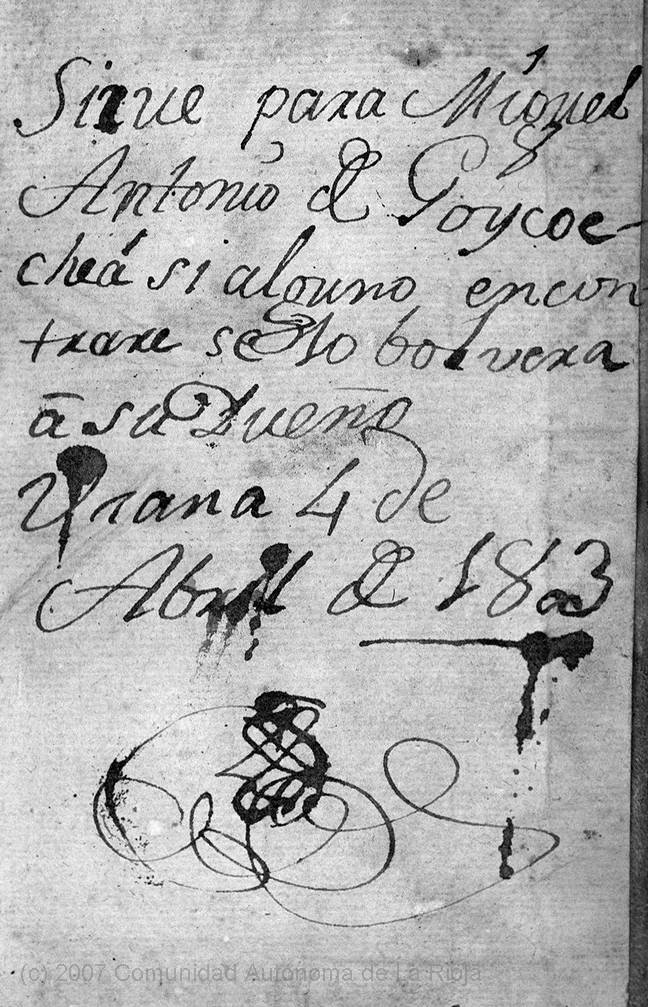 Sirue para Miguel
Antonio de Goycoe-
cheá si alguno encon-
trare se lo bolvera
a su Dueño
Viana 4 de
Abril de 1823
(c) 2007 Comunidad Autónoma de La Rioja